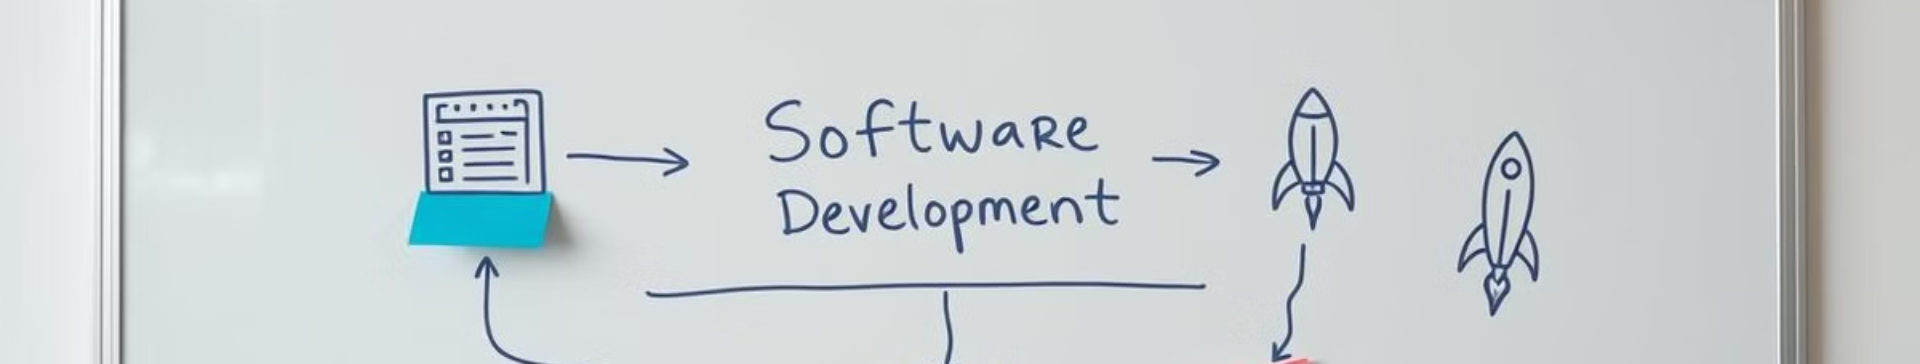 Software
Development